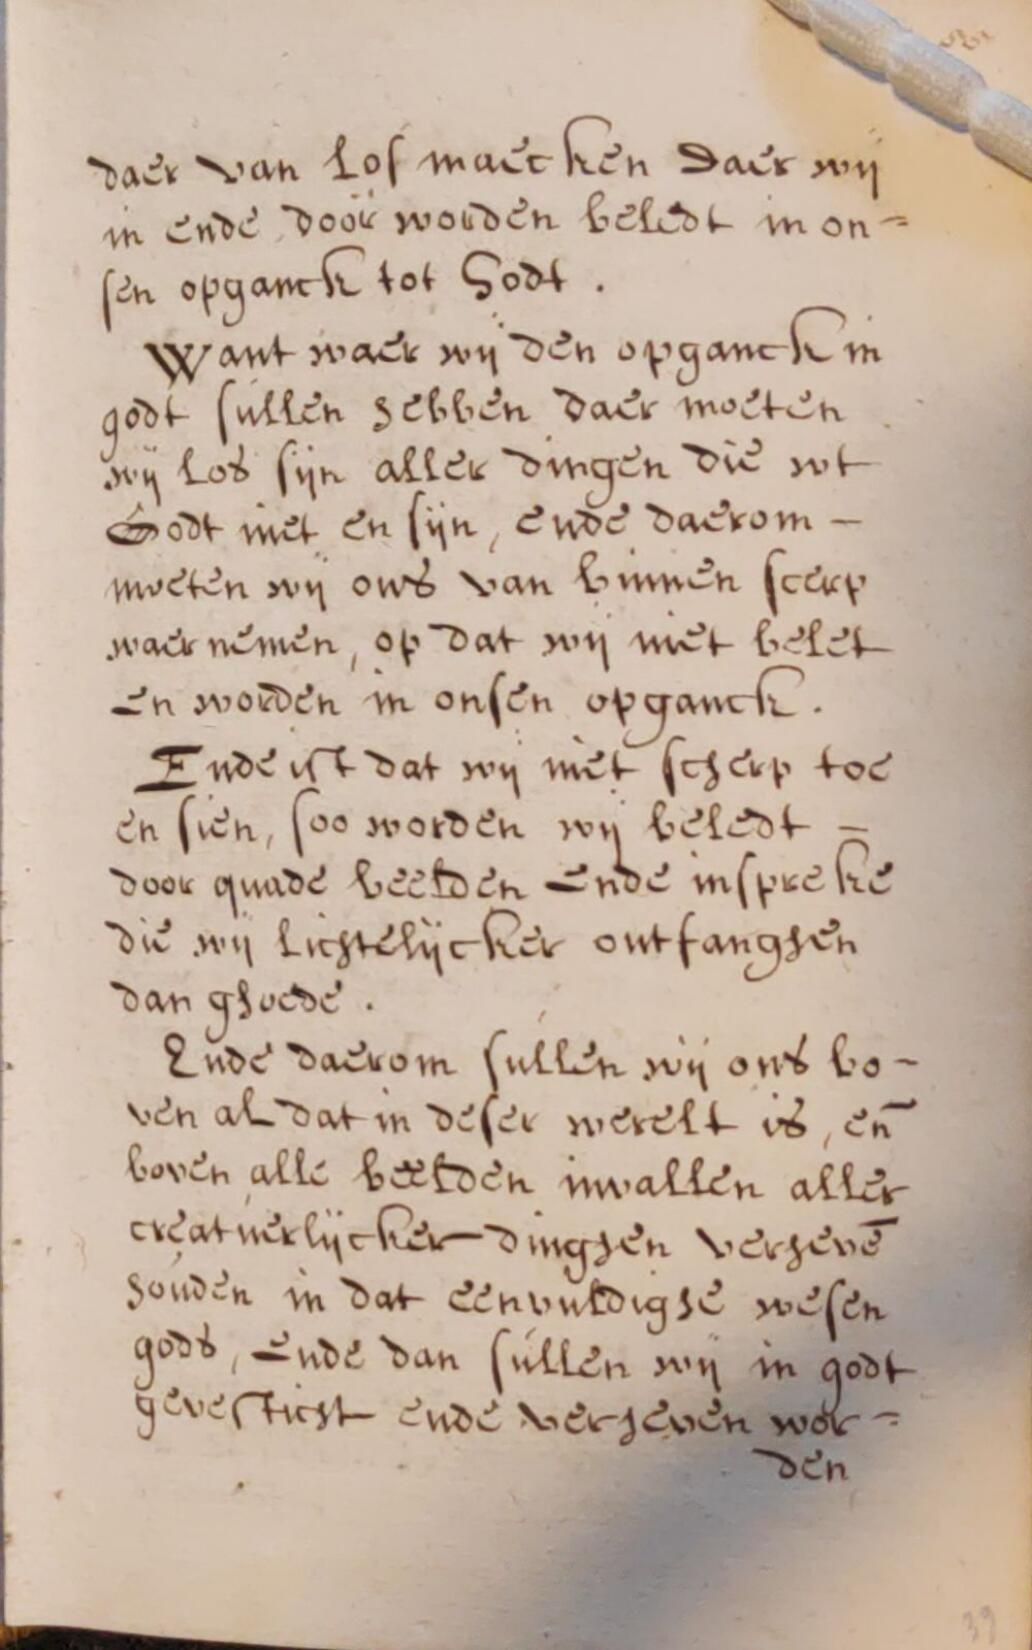 daer van los maecken Daer wij
in ende door worden beledt in on-
sen opganck tot Godt .
Want waer wij den opganck in
godt sullen hebben daer moeten
wij los sijn aller dingen die wt
Godt niet en sijn, ende daerom -
moeten wij ons van binnen scerp
waer nemen, op dat wij niet belet
en worden in onsen opganck .
Ende ist dat wij niet scherp toe
en sien, soo worden wij beledt -
door quade beelden ende inspreke
die wij lichtelijcker ontfanghen
dan ghoede .
Ende daerom sullen wij ons bo-
ven al dat in deser werelt is, en̄
boven alle beelden invallen aller
creatuerlijcker dinghen verhevē
houden in dat eenvuldighe wesen
gods, ende dan sullen wij in godt
gevesticht ende verheven wor-
den
39